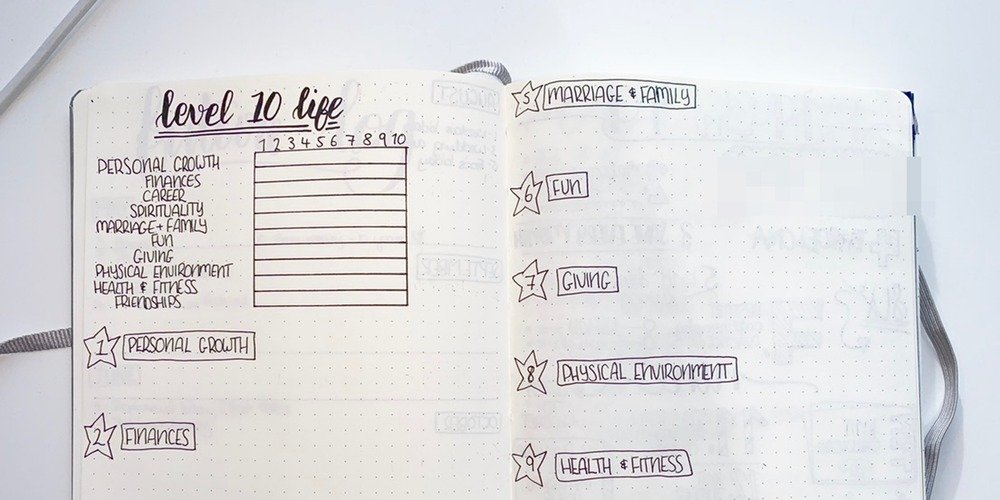 level 10 life
1 2 3 4 5 6 7 8 9 10
PERSONAL GROWTH
FINANCES
CAREER
SPIRITUALITY
MARRIAGE + FAMILY
FUN
GIVING
PHYSICAL ENVIRONMENT
HEALTH & FITNESS
FRIENDSHIPS
1 PERSONAL GROWTH
2 FINANCES
5 MARRIAGE & FAMILY
6 FUN
7 GIVING
8 PHYSICAL ENVIRONMENT
9 HEALTH & FITNESS